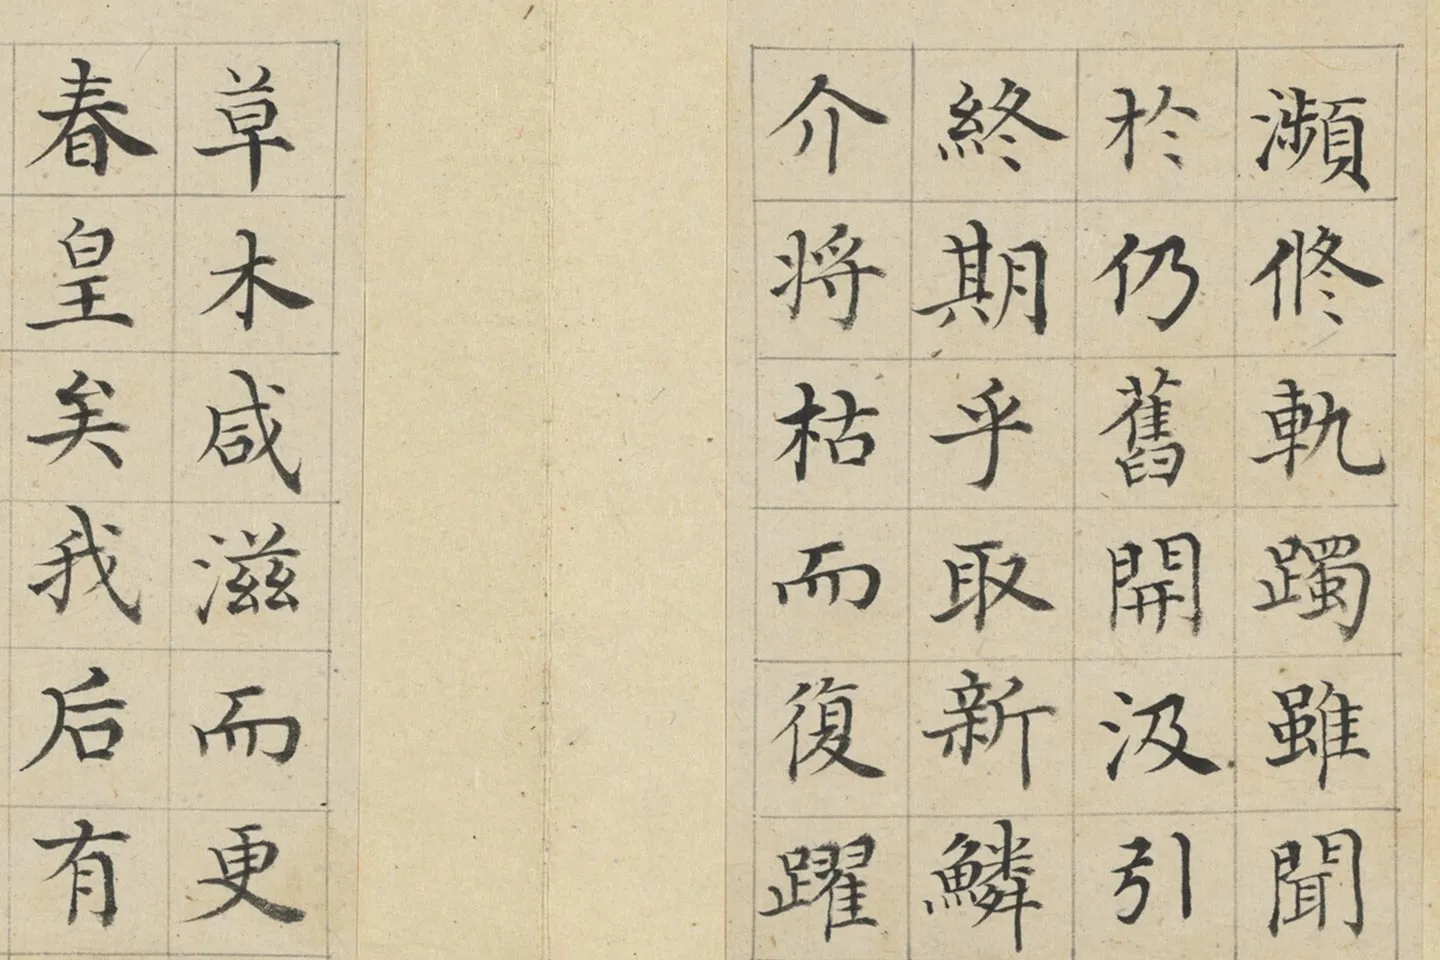 瀕脩軌躅雖聞
於仍舊開汲引
終期乎取新鱗
介将枯而復躍
草木咸滋而更
春皇矣我后有